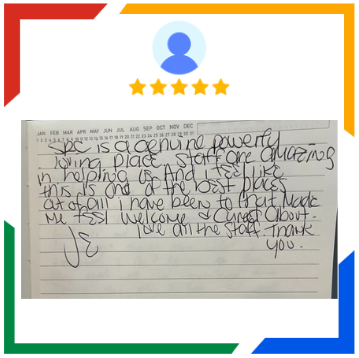 JAN FEB MAR APR MAY JUN JUL AUG SEP OCT NOV DEC
1 2 3 4 5 6 7 8 9 10 11 12 13 14 15 16 17 18 19 20 21 22 23 24 25 26 27 28 29 30 31
is a genuine powerful
loving place staff are amazing
in helping us And i feel like
this is one of the best places
out of all i have been to that made
me feel welcome & cared about.
love all the staff Thank
you.
JE